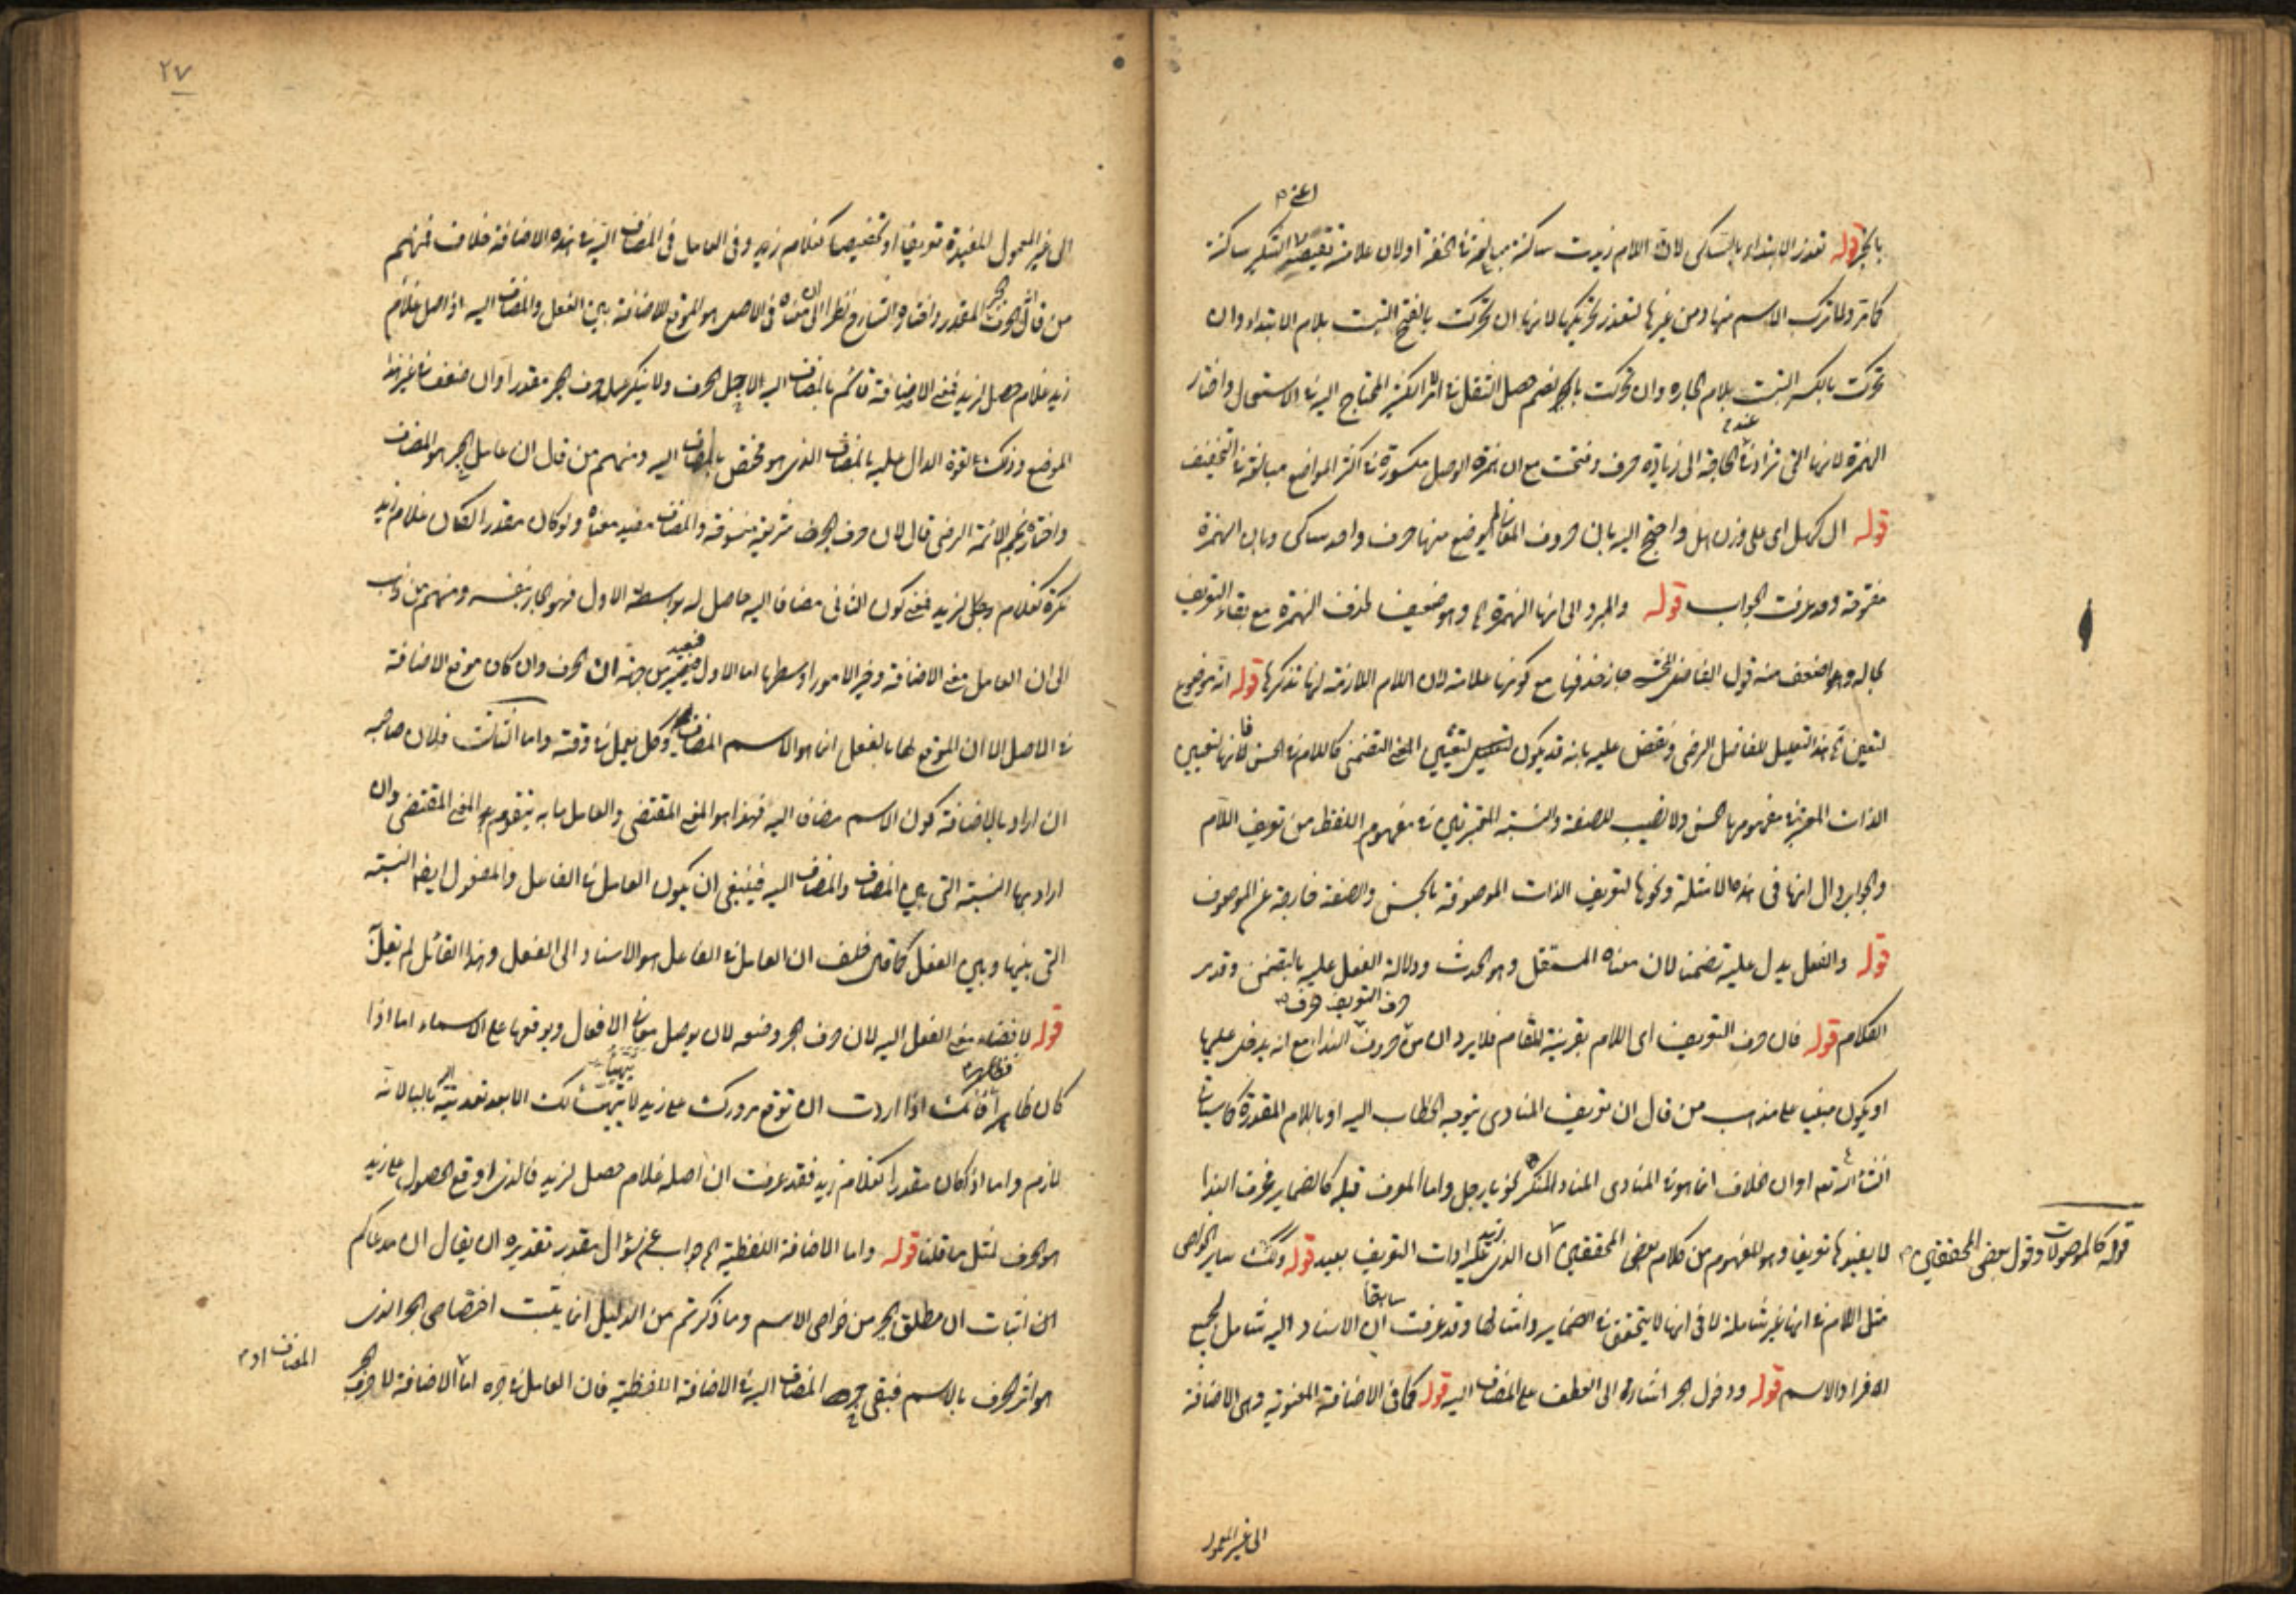 اعنى
بالجر قوله تعذر الابتداء بالساكن لان اللام زيدت ساكنة مبالغة فى الخفة اولان علامة نقيضه التنكير ساكنة
ولما ترك الاسم منها ومن غيرها لتعذر تحريكها لانها ان تحركت بالفتح التبست بلام الابتداء وان
تحركت بالكسر التبست بلام الجارة وان تحركت بالضم حصل الثقل فى الكثير المحتاج اليه فى الاستعمال واختار
الهمزة لانها التى تزاد عند الحاجة الى زيادة حرف وفتحت مع ان همزة الوصل مكسورة فى اكثر المواضع مبالغة فى التخفيف
قوله ال كهل اى على وزن هل واحتج اليه بان حروف المعانى لم يوضع منها حرف واحد ساكن وبان الهمزة
مفتوحة وقد عرفت الجواب قوله والمبرد الى انها الهمزة الخ وهو ضعيف لحذف الهمزة مع بقاء التعريف
بحاله واضعف منه قول الفاضل جاز حذفها مع كونها علامة لان اللام اللازمة لها تذكرها قوله انه موضوع
لتعيين الخ هذا التعليل للفاضل الرضى ونقض عليه بانه قد يكون لتعيين المعنى التضمنى كاللام فى الحسن فانها لتعيين
الذات المعتبرة فى مفهومها الحسن ولا نصيب للصفة والنسبة المعتبرتين فى مفهوم اللفظ من تعريف اللام
والجواب ان انها فى هذه الامثلة ونحوها لتعريف الذات الموصوفة بالحسن والصفة خارجة عن الموصوف
قوله والفعل يدل عليه تضمنا لان معناه المستقل وهو الحدث ودلالة الفعل عليه بالتضمن وقد مر
حرف التعريف حرف
الكلام قوله فان حرف التعريف اى اللام بقرينة المقام فلا يرد ان من حروف النداء مع انه يدخل عليها
او يكون مبنيا على مذهب من قال ان تعريف المنادى بتوجه الخطاب اليه او باللام المقدرة كما سيأتى
ان شاء الله تعالى او ان الخلاف انما هو فى المنادى المنكر نحو يا رجل واما المعرف قبله كالضمائر فحرف النداء
لا يفيدها تعريفا وهو المفهوم من كلام بعض المحققين ان الذى ينكر ادات التعريف بعيد قوله وكذلك سائر الخواص
قوله كالموصولات وقول بعض المحققين
مثل اللام فى انها غير شاملة لا فى انها لا يتحقق فى الضمائر وامثالها وقد عرفت سابقا ان الاسناد اليه شامل لجميع
افراد الاسم قوله ودخول الجر اشارة الى العطف على المضاف اليه قوله كما فى الاضافة المعنوية وهى الاضافة
الى غير المعمول
٢٧
الى غير المعمول المفيدة تعريفا او تخصيصا كغلام زيد وفى العامل فى المضاف اليه فى هذه الاضافة خلاف فمنهم
من قال انه الحرف الجر المقدر واختاره الشارح نظرا الى ان معناه فى الاصل هو الموقع للاضافة بين الفعل والمضاف اليه اذ اصل غلام
زيد غلام حصل لزيد فمعنى الاضافة قائم بالمضاف اليه لاجل الحرف ولا ينكر عمل حرف الجر مقدرا وان ضعف فى غير هذا
الموضع وذلك لقوة الدال عليه بالمضاف الذى هو مختص بالمضاف اليه ومنهم من قال ان عامل الجر هو المضاف
واختاره نجم الائمة الرضى قال لان حرف الجر شريعة منسوخة والمضاف مفيد معناه ولو كان مقدرا لكان غلام زيد
نكرة كغلام لزيد فمعنى كون الثانى مضافا اليه حاصل له بواسطة الاول فهو الجار بنفسه ومنهم من ذهب
الى ان العامل معنى الاضافة وخير الامور اوسطها اما الاول فبعيد من جهة ان الحرف وان كان موقع الاضافة
فى الاصل الا ان الموقع لها بالفعل انما هو الاسم المضاف وكل يعمل فى وقته واما الثالث فلان صاحبه
ان اراد بالاضافة كون الاسم مضافا اليه فهذا هو المعنى المقتضى والعامل ما به يتقوم المعنى المقتضى وان
اراد بها النسبة التى بين المضاف والمضاف اليه فينبغى ان يكون العامل فى الفاعل والمفعول ايضا النسبة
التى بينهما وبين الفعل كما قال خلف ان العامل فى الفاعل هو الاسناد الى الفعل وهذا القائل لم يقل
قوله لافضاء معنى الفعل اليه لان حرف الجر وضعه لان يوصل معانى الافعال ويوقعها على الاسماء اما اذا
كان ظاهرا فظاهر لانك اذا اردت ان توقع مرورك على زيد لا يتهيأ لك الا بعد تعديته بالباء لانه
لازم واما اذا كان مقدرا كغلام زيد فقد عرفت ان اصله غلام حصل لزيد فالذى اوقع الحصول على زيد
هو الحرف لمثل ما قلنا قوله واما الاضافة اللفظية الخ جواب عن سؤال مقدر تقديره ان يقال ان مدعاكم
اثبات ان مطلق الجر من خواص الاسم وما ذكرتم من الدليل انما يثبت اختصاص الجر الذى
هو اثر الحرف بالاسم فبقى جر المضاف اليه فى الاضافة اللفظية فان العامل فى جره اما الاضافة لا حرف الجر
المضاف او